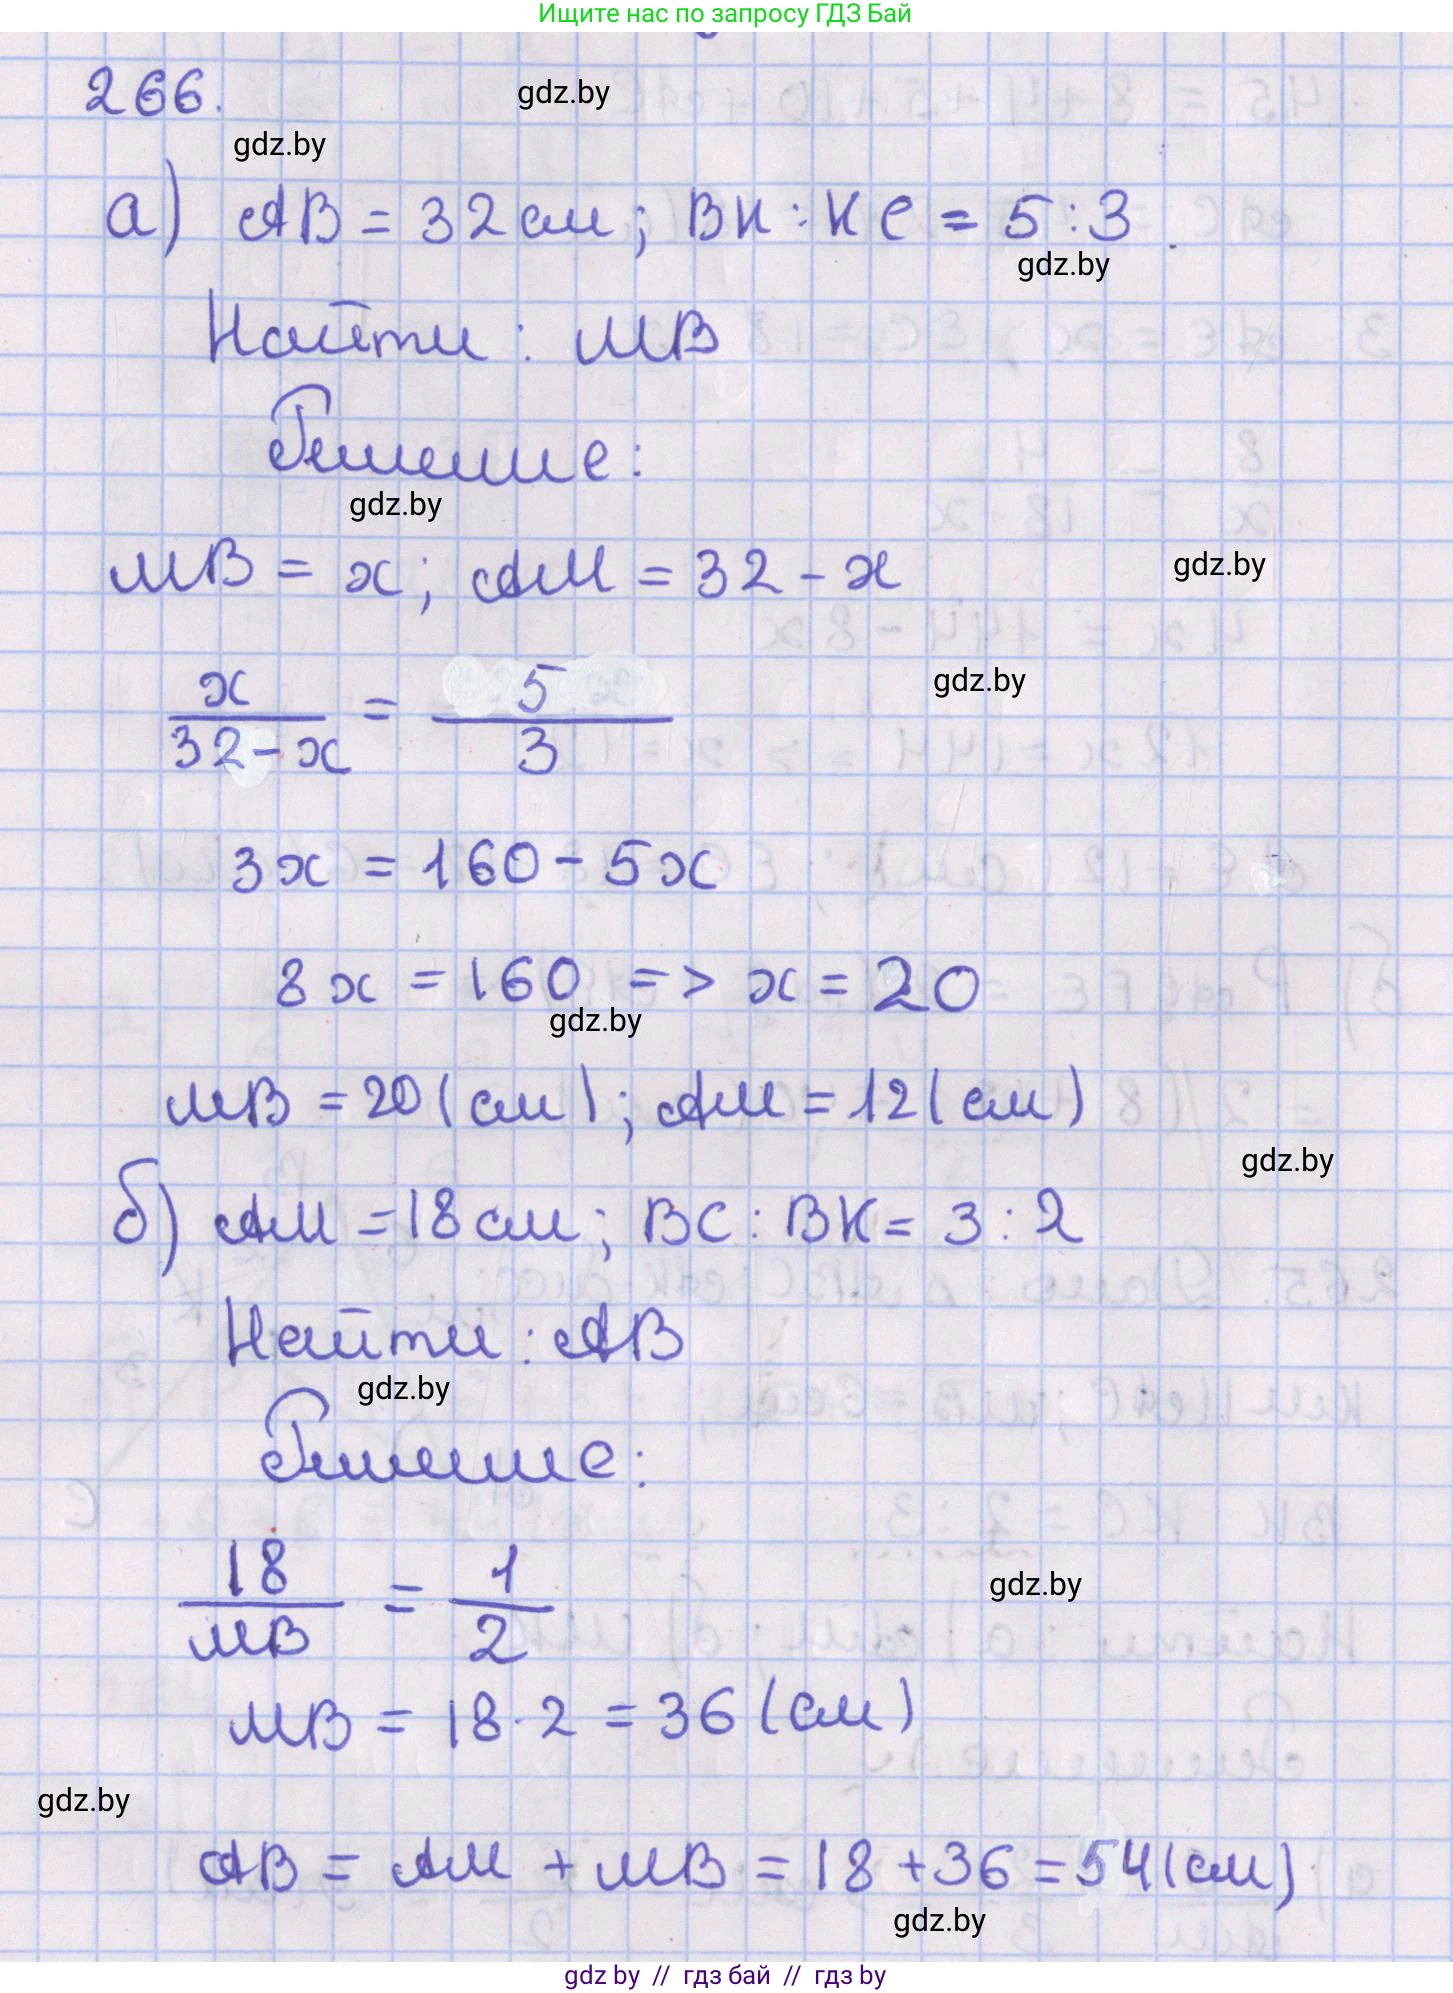 Ищите нас по запросу ГДЗ Бай
266.
gdz.by
gdz.by
а) AB = 32 см; BK : KC = 5 : 3.
gdz.by
Найти : MB
Решение:
gdz.by
MB = x; AM = 32 - x
gdz.by
x / 32 - x = 5 / 3
gdz.by
3x = 160 - 5x
8x = 160 => x = 20
gdz.by
MB = 20 (см); AM = 12 (см)
gdz.by
б) AM = 18 см; BC : BK = 3 : 2
Найти : AB
gdz.by
Решение:
18 / MB = 1 / 2
gdz.by
MB = 18 · 2 = 36 (см)
gdz.by
AB = AM + MB = 18 + 36 = 54 (см)
gdz.by
gdz by // гдз бай // гдз by